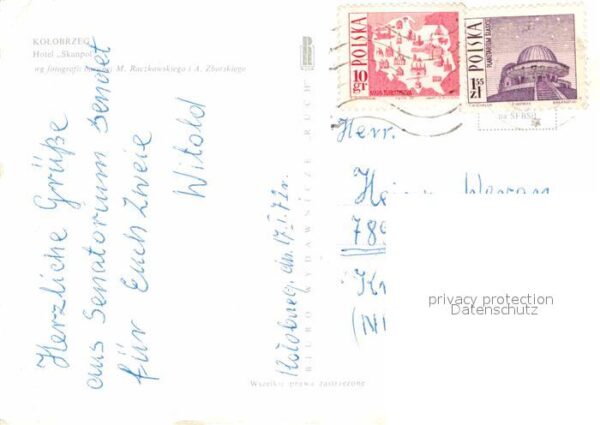 KOŁOBRZEG
Hotel „Skanpol
wg fotografii M. Raczkowskiego i A. Zborskiego
Herzliche Grüße
aus Senatorium sendet
für Euch Zweie
Witold
Kołobrzeg, dn. 17.I.72r.
BIURO WYDAWNICZE „RUCH"
Wszelkie prawa zastrzeżone
POLSKA
10 gr
POLSKA
PLANETARIUM ŚLĄSKIE
1.55 zł
Herr.
789
Kr
privacy protection
Datenschutz